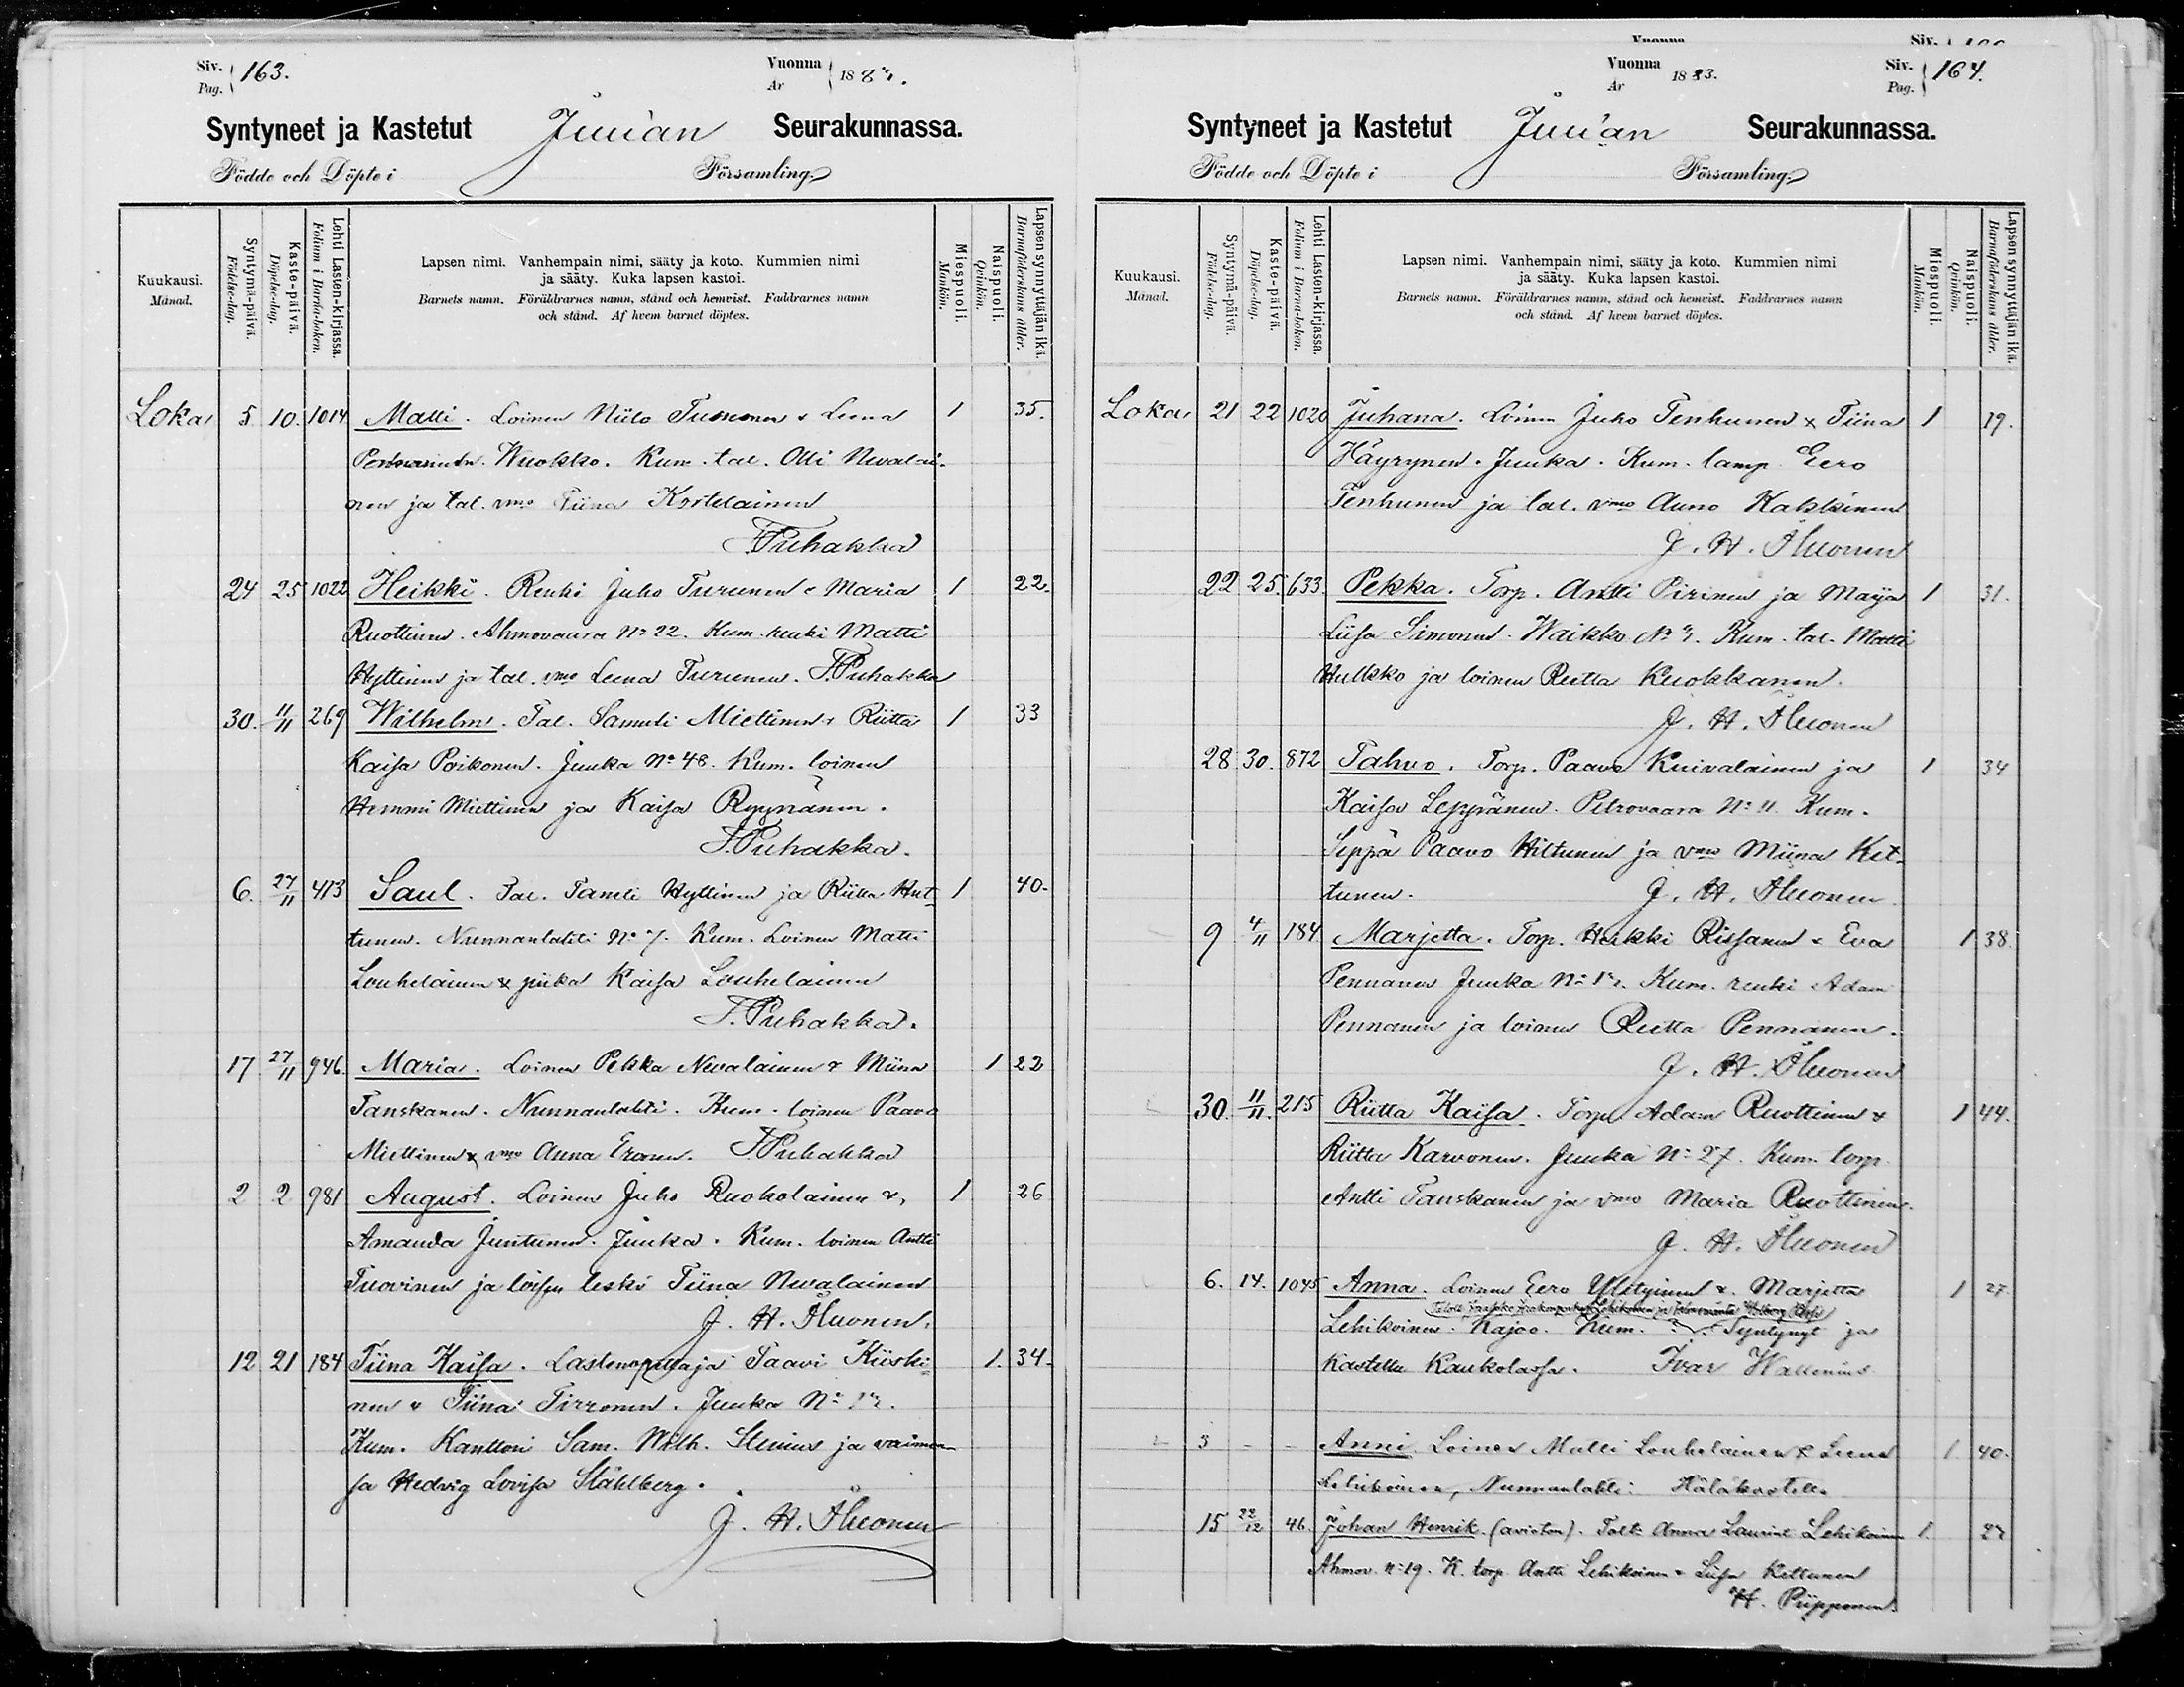 Siv.
Pag. 163.
Vuonna
År 188
Syntyneet ja Kastetut Juu'an Seurakunnassa.
Födde och Döpte i Församling.
Kuukausi.
Månad.
Syntymä-päivä.
Födelse-dag.
Kaste-päivä.
Döpelse-dag.
Lehti Lasten-kirjassa.
Folium i Barna-boken.
Lapsen nimi. Vanhempain nimi, sääty ja koto. Kummien nimi
ja sääty. Kuka lapsen kastoi.
Barnets namn. Föräldrarnes namn, stånd och hemvist. Faddrarnes namn
och stånd. Af hvem barnet döptes.
Miespuoli.
Mankön.
Naispuoli.
Qvinkön.
Lapsen synnyttäjän ikä.
Barnaföderskans ålder.
Loka 5 10. 1014 Matti. Loinen Niilo Turunen & Leena 1 35.
Wuokko. Kum. tal. Olli Nevalai-
nen ja tal. vmo Tiina Kortelainen
F. Puhakka
24 25 1022 Heikki. Renki Juho Turunen & Maria 1 22.
Ruottinen. Ahmovaara No 22. Kum. renki Matti
Hyttinen ja tal. vmo Leena Turunen. F. Puhakka
30. 11/11 269 Wilhelm. Tal. Samuli Miettinen & Riitta 1 33
Kaisa Poikonen. Juuka No 48. Kum. loinen
Hemmi Miettinen ja Kaisa Ryynänen.
F. Puhakka.
6. 27/11 413 Saul. Tal. Taneli Hyttinen ja Riitta Hut- 1 40.
tunen. Nunnanlahti No 7. Kum. Loinen Matti
Louhelainen & piika Kaisa Louhelainen
F. Puhakka.
17 27/11 946. Maria. Loinen Pekka Nevalainen & Miina 1 22
Tanskanen. Nunnanlahti. Kum. loinen Paavo
Miettinen & vmo Anna Eronen. F. Puhakka
2 2 981 August. Loinen Juho Ruokolainen & 1 26
Amanda Juntunen. Juuka. Kum. loinen Antti
Tuovinen ja loisen leski Tiina Nevalainen
J. H. Åhuonen.
12 21 184 Tiina Kaisa. Lastenopettaja Taavi Kiiski- 1. 34.
nen & Tiina Tirronen. Juuka No
Kum. Kanttori Sam. Wilh. Stenius ja vaimon-
sa Hedvig Lovisa Ståhlberg.
J. H. Åhuonen
Vuonna
Siv.
Vuonna
År 1883.
Siv.
Pag. 164.
Syntyneet ja Kastetut Juu'an Seurakunnassa.
Födde och Döpte i Församling.
Kuukausi.
Månad.
Syntymä-päivä.
Födelse-dag.
Kaste-päivä.
Döpelse-dag.
Lehti Lasten-kirjassa.
Folium i Barna-boken.
Lapsen nimi. Vanhempain nimi, sääty ja koto. Kummien nimi
ja sääty. Kuka lapsen kastoi.
Barnets namn. Föräldrarnes namn, stånd och hemvist. Faddrarnes namn
och stånd. Af hvem barnet döptes.
Miespuoli.
Mankön.
Naispuoli.
Qvinkön.
Lapsen synnyttäjän ikä.
Barnaföderskans ålder.
Loka 21 22 1020 Juhana. Loinen Juho Tenhunen & Tiina 1 19.
Häyrynen. Juuka. Kum. lamp. Eero
Tenhunen ja tal. vmo Auno Kakkinen
J. H. Åhuonen
22 25. 633. Pekka. Torp. Antti Pirinen ja Marja 1 31.
Liisa Simonen. Waikko No 3. Kum. tal. Matti
Hulkko ja loinen Reetta Kuokkanen.
J. H. Åhuonen
28 30. 872 Tahvo. Torp. Paavo Kuivalainen ja 1 34
Kaisa Leppänen. Petrovaara No 11. Kum.
Seppä Paavo Hiltunen ja vmo Miina Ket-
tunen. J. H. Åhuonen.
9 4/11 184 Marjetta. Torp. Heikki Rissanen & Eva 1 38.
Pennanen Juuka No Kum. renki Adam
Pennanen ja loinen Reetta Pennanen.
J. H. Åhuonen
30. 11/11. 215 Riitta Kaisa. Torp. Adam Ruottinen & 1 44.
Riitta Karvonen. Juuka No 27. Kum. torp.
Antti Tanskanen ja vmo Maria Ruottinen.
J. H. Åhuonen
6. 14. 1045 Anna. Loinen Eero Ylityinen & Marjetta 1 27.
Lehikoinen. Kajoo. Kum. Syntynyt ja
kastettu Kaukolassa. Ivar Wallenius
3 - - Anni. Loinen Matti Louhelainen & Leena 1. 40.
Lehikoinen, Nunnanlahti. Hätäkastettu
15 22/12 46. Johan Henrik. (avioton). Talt. Anna Lauriint. Lehikoinen 1. 27
Ahmov. No 19. K. torp. Antti Lehikoinen & Liisa Kettunen
H. Piipponen.